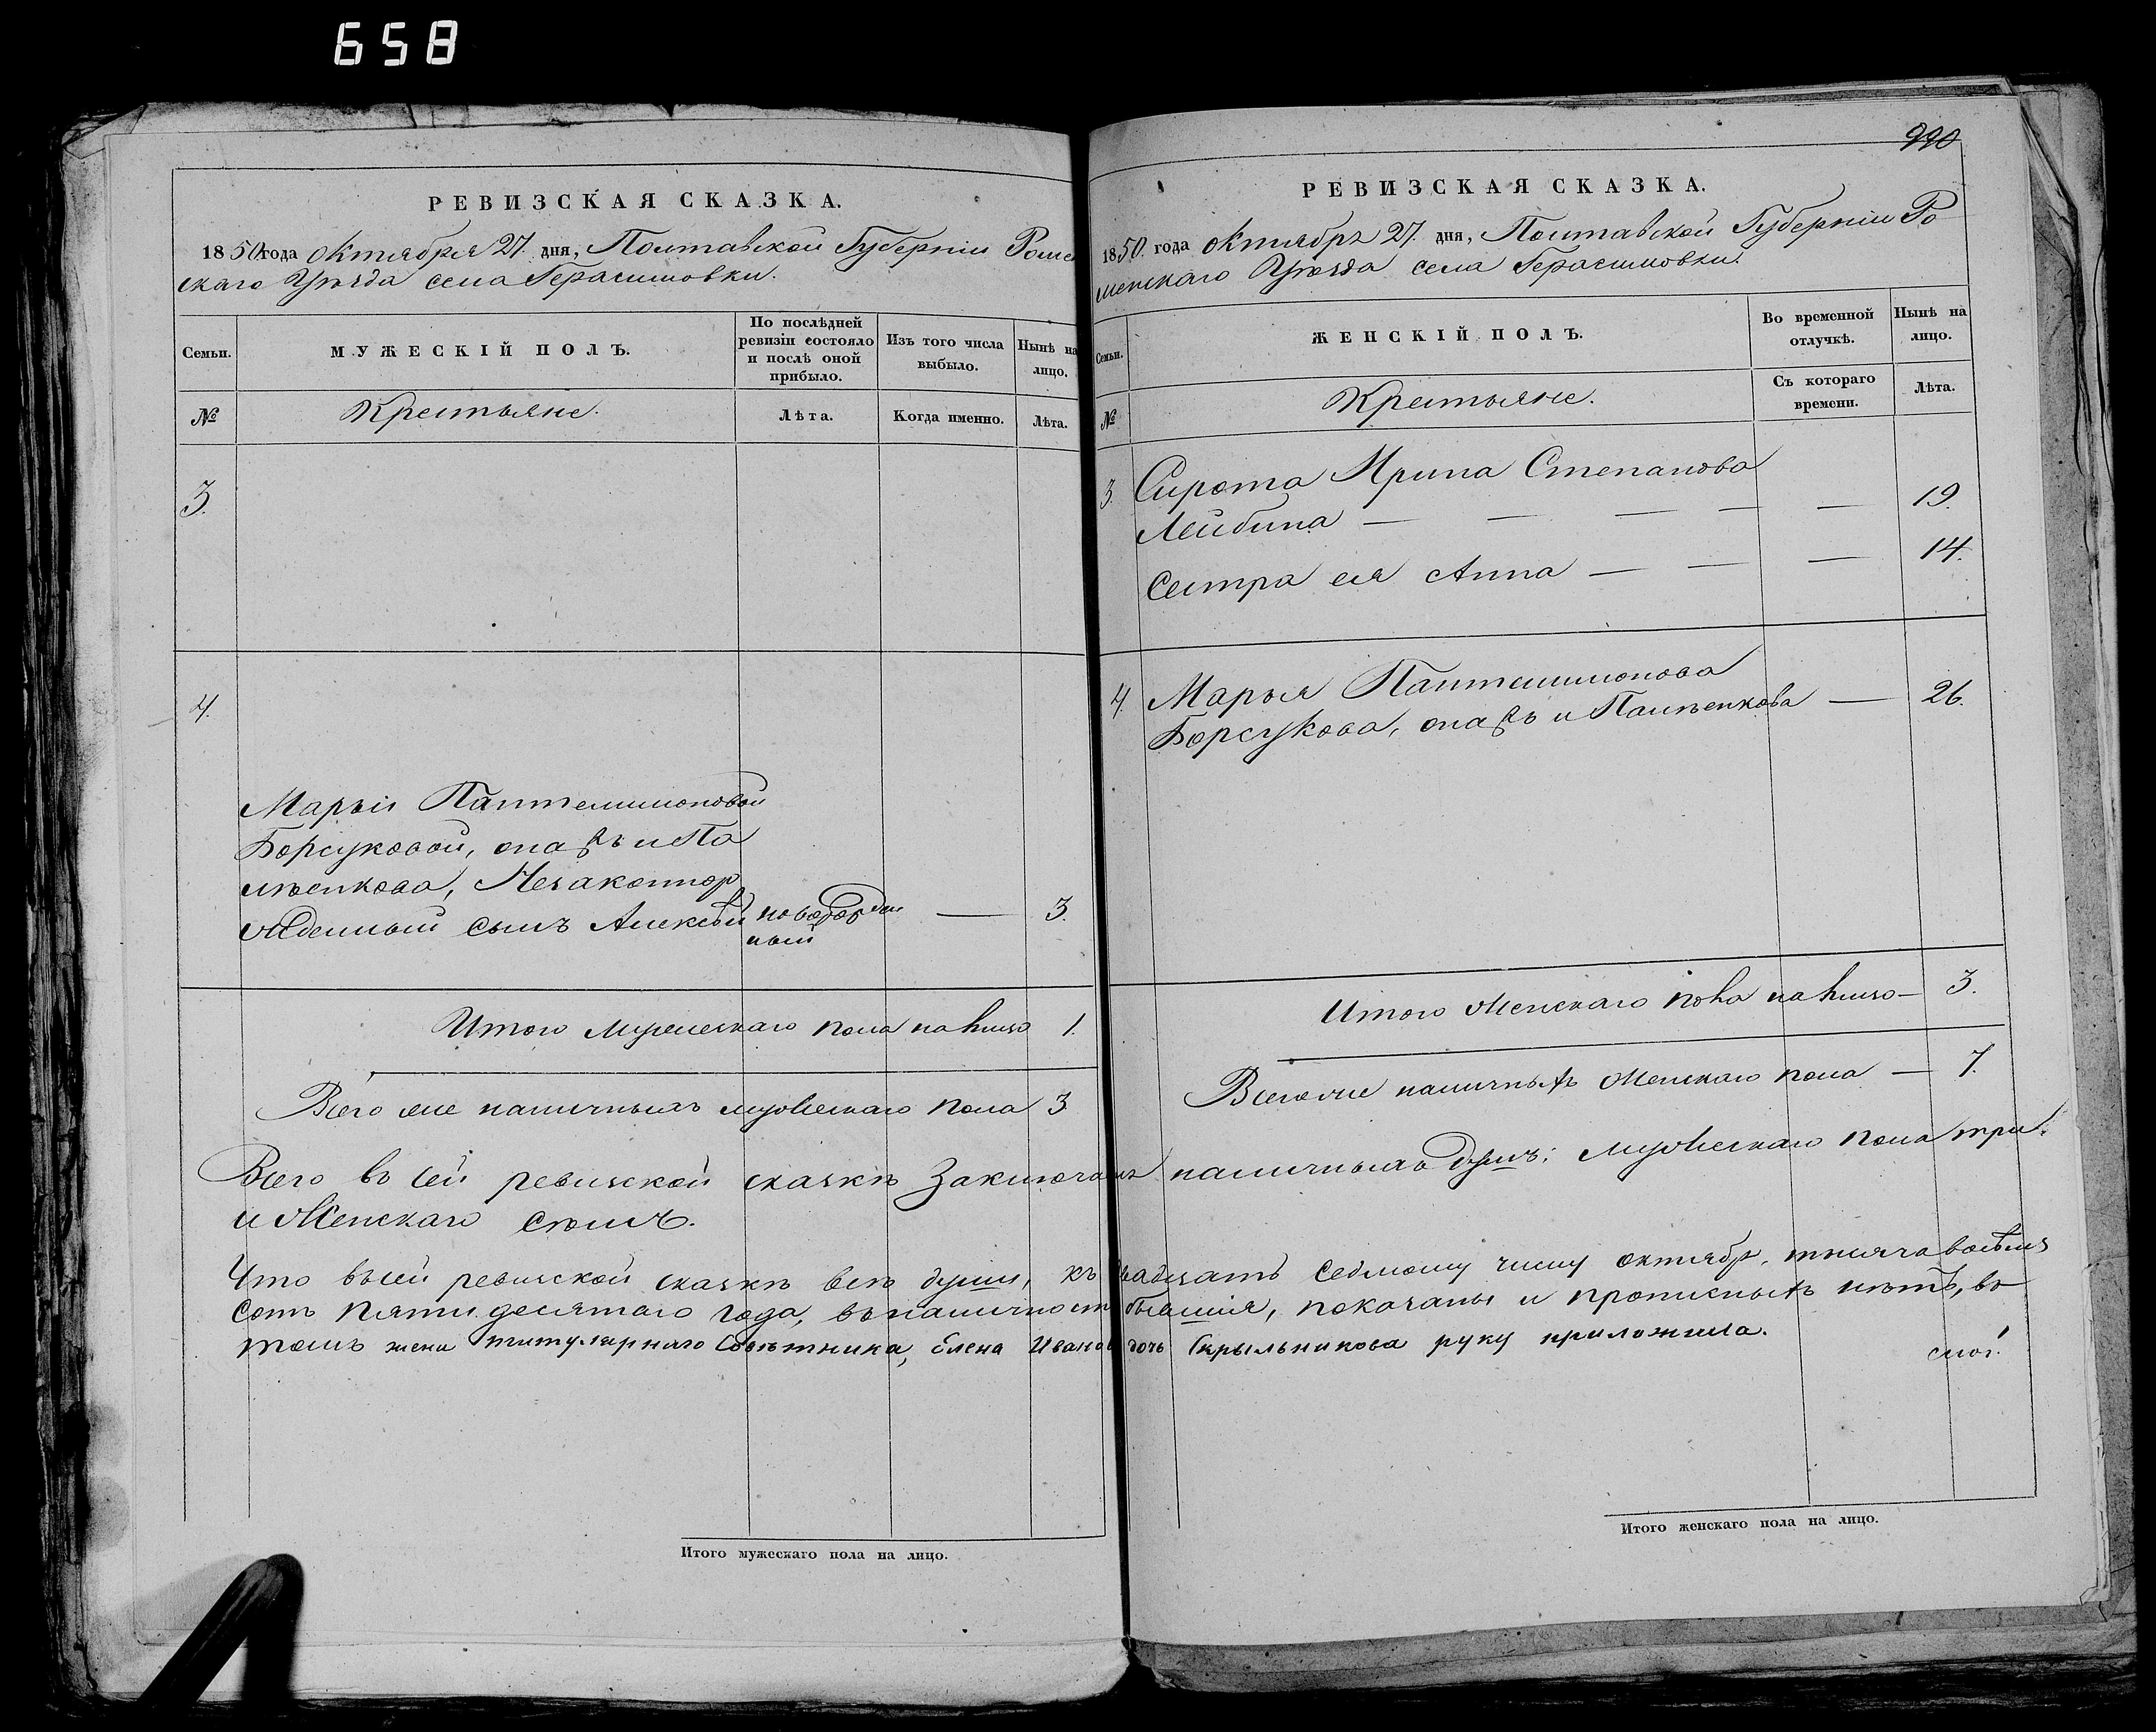 658
РЕВИЗСКАЯ СКАЗКА.
1850 года октября 27. дня, Полтавской Губерніи Ромен
скаго Уѣзда села Герасимовки.
Семьи.
МУЖЕСКІЙ ПОЛЪ.
По послѣдней ревизіи состояло и послѣ оной прибыло.
Изъ того числа выбыло.
Нынѣ на лицо.
№
Крестьяне.
Лѣта.
Когда именно.
Лѣта.
3.
4.
Марьи Пантелимоновой
Борсуковой, она жъ и Па
лѣенкова, Незаконнор
жденный сынъ Алексѣй новорожден
ный — 3.
Итого мужескаго пола на лицо 1.
Всего же наличныхъ мужескаго пола 3
990
РЕВИЗСКАЯ СКАЗКА.
1850. года октября 27. дня, Полтавской Губерніи Ро
менскаго Уѣзда села Герасимовки.
Семьи.
ЖЕНСКІЙ ПОЛЪ.
Во временной отлучкѣ.
Нынѣ на лицо.
№
Крестьяне.
Съ котораго времени.
Лѣта.
3. Сирота Ирина Степанова
Лейбина — — — — — 19.
Сестра ея Анна — — — 14.
4. Марья Пантелимонова
Борсукова, она жъ и Палѣенкова — 26.
Итого Женскаго пола на лицо — 3.
Всего же наличныхъ Женскаго пола — 7.
Всего въ сей ревизской сказкѣ Заключаетъ наличныхъ душъ: мужескаго пола три.
и Женскаго семъ.
Что въ сей ревизской сказкѣ всѣ души, къ двадцать седмому числу октября, тысяча восѣмъ
сотъ пятидесятаго года, въ наличности бывшія, показаны и прописныхъ нѣтъ, въ
томъ жена титулярнаго Совѣтника, Елена Иванов дочь Скрыльникова руку приложила.
Итого мужескаго пола на лицо.
Итого женскаго пола на лицо.